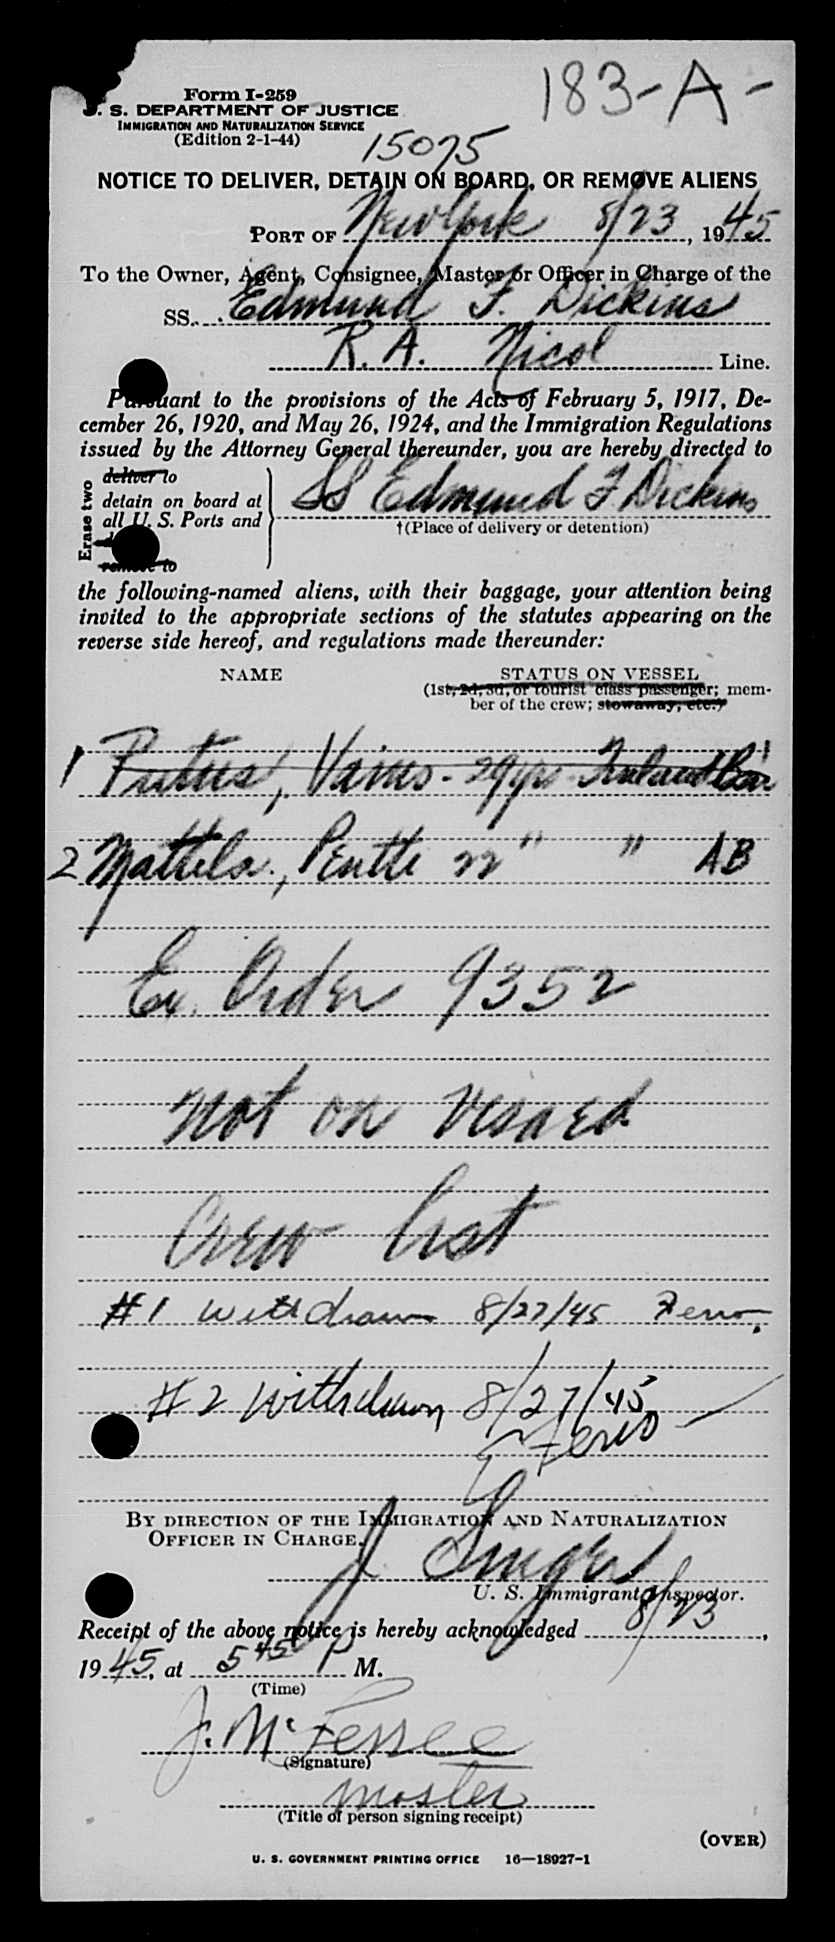 183-A-
Form I-259
U. S. DEPARTMENT OF JUSTICE
IMMIGRATION AND NATURALIZATION SERVICE
(Edition 2-1-44)
15075
NOTICE TO DELIVER, DETAIN ON BOARD, OR REMOVE ALIENS
PORT OF New York 8/23, 1945
To the Owner, Agent, Consignee, Master or Officer in Charge of the
SS. Edmund F. Dickins
R. A. Nicol Line.
Pursuant to the provisions of the Acts of February 5, 1917, De-
cember 26, 1920, and May 26, 1924, and the Immigration Regulations
issued by the Attorney General thereunder, you are hereby directed to
Erase two
deliver to
detain on board at
all U. S. Ports and
remove to
SS Edmund F Dickins
†(Place of delivery or detention)
the following-named aliens, with their baggage, your attention being
invited to the appropriate sections of the statutes appearing on the
reverse side hereof, and regulations made thereunder:
NAME STATUS ON VESSEL
(1st, 2d, 3d, or tourist class passenger; mem-
ber of the crew; stowaway, etc.)
1 29 yrs Finland
2 Mattila, Pentti 22 " " AB
Ex. Order 9352
Not on visaed
Crew list
#1 Withdrawn 8/27/45
#2 Withdrawn 8/27/45
BY DIRECTION OF THE IMMIGRATION AND NATURALIZATION
OFFICER IN CHARGE.
J Singer
U. S. Immigrant Inspector.
Receipt of the above notice is hereby acknowledged 8/23,
1945, at 5 45 P M.
(Time)
(Signature)
master
(Title of person signing receipt)
(OVER)
U. S. GOVERNMENT PRINTING OFFICE 16—18927-1